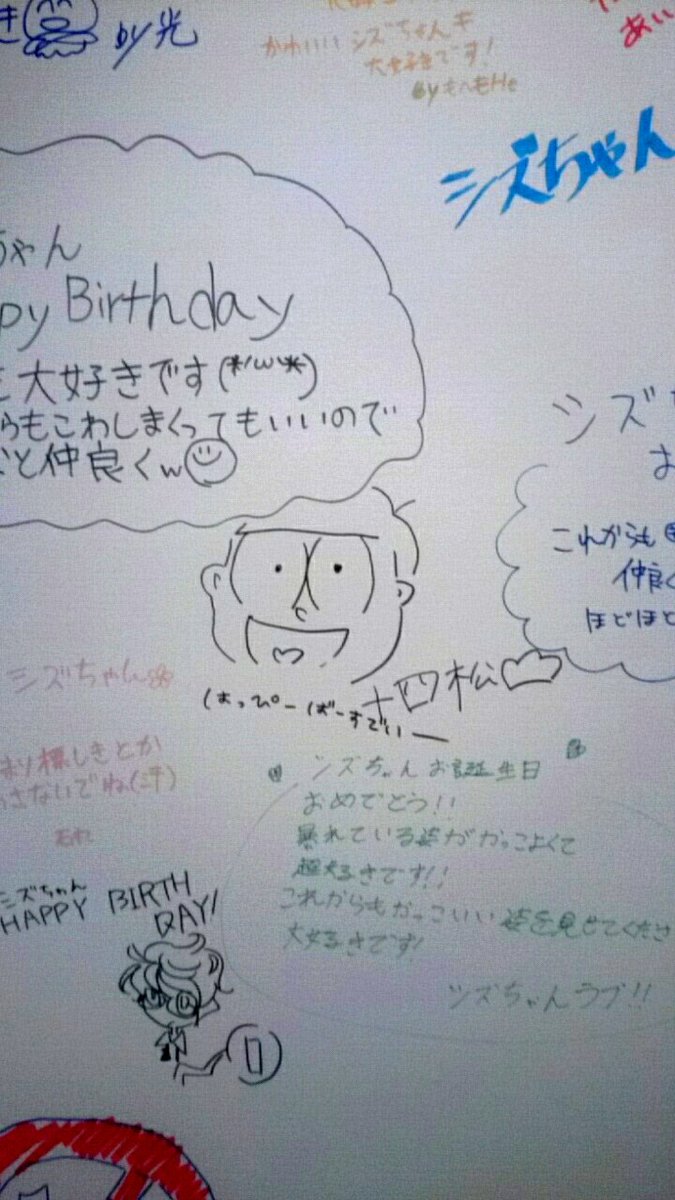 by光
かわいい シズちゃんが
大好きです!
By もへもHe
あい
シズちゃん
ちゃん
py Birthday
大好きです(*/ω\*)
らもこわしまくってもいいので
と仲良くw
シズ
お
これからも
仲良く
ほどほど
十四松
はっぴーばーすでいー
シズちゃん
標しきとか
さないでね(汗)
シズちゃん お誕生日
おめでとう!!
暴れている姿がかっこよくて
超大好きです!!
これからもかっこいい姿を見せてくださ
大好きです!
シズちゃんラブ!!
シズちゃん
HAPPY BIRTH
DAY!